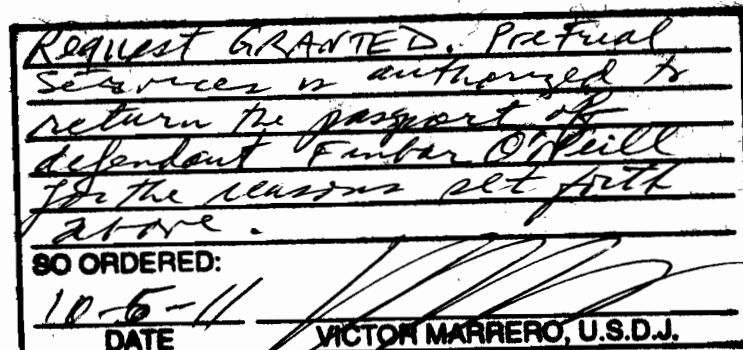 Request GRANTED. Pretrial
Services is authorized to
return the passport of
defendant Finbar O'Neill
for the reasons set forth
above.
SO ORDERED:
10-6-11
DATE VICTOR MARRERO, U.S.D.J.